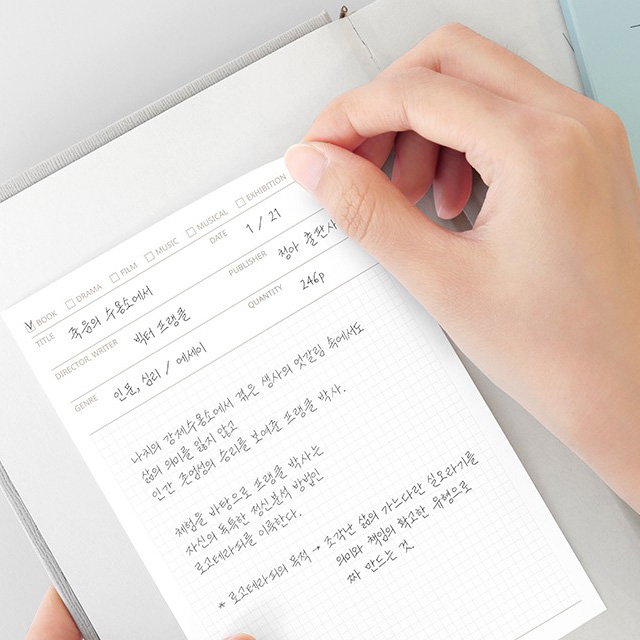 BOOK DRAMA FILM MUSIC MUSICAL EXHIBITION
TITLE 죽음의 수용소에서 DATE 1 / 21
DIRECTOR. WRITER 빅터 프랭클 PUBLISHER 청아 출판사
GENRE 인문, 심리 / 에세이 QUANTITY 246p
나치의 강제수용소에서 겪은 생사의 엇갈림 속에서도
삶의 의미를 잃지 않고
인간 존엄성의 승리를 보여준 프랭클 박사.
체험을 바탕으로 프랭클 박사는
자신의 독특한 정신분석 방법인
로고테라피를 이룩한다.
* 로고테라피의 목적 → 조각난 삶의 가느다란 실오라기를
의미와 책임의 확고한 유형으로
짜 만드는 것.